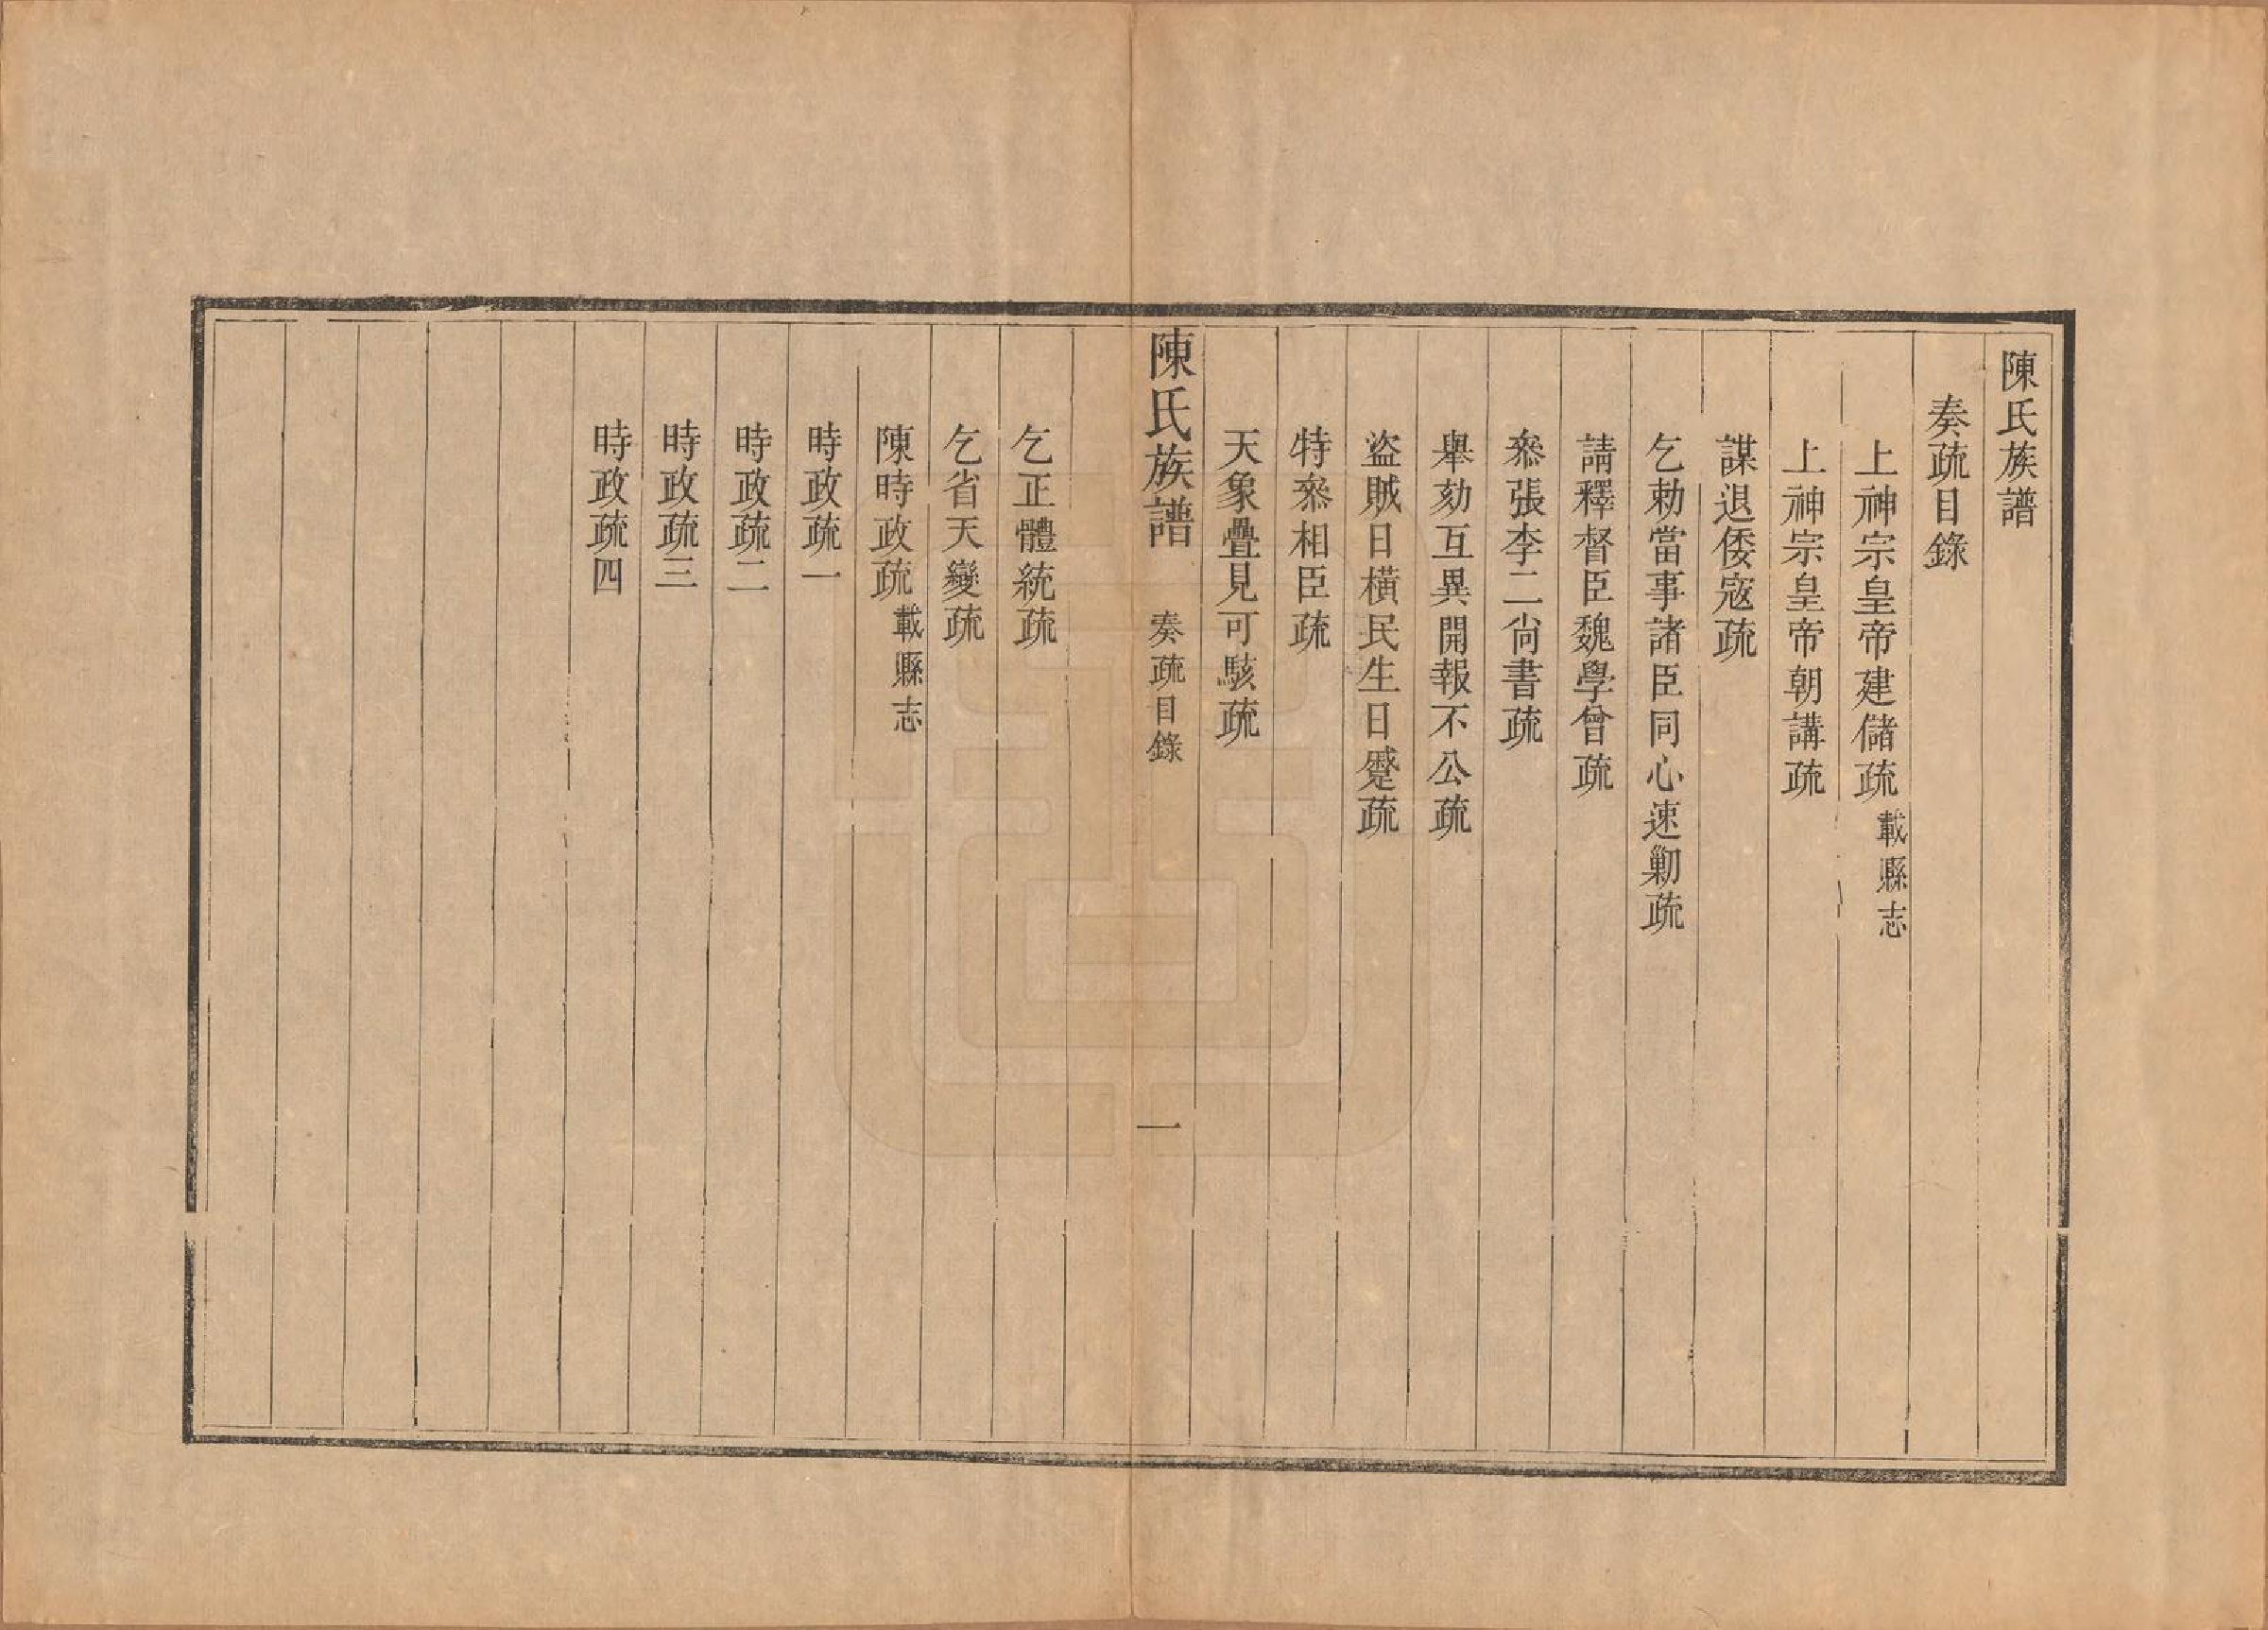 陳氏族譜
奏疏目錄
上神宗皇帝建儲疏載縣志
上神宗皇帝朝講疏
謀退倭寇疏
乞勅當事諸臣同心速勦疏
請釋督臣魏學曾疏
叅張李二尙書疏
舉劾互異開報不公疏
盜賊日橫民生日蹙疏
特叅相臣疏
天象疊見可駭疏
陳氏族譜 奏疏目錄 一
乞正體統疏
乞省天變疏
陳時政疏載縣志
時政疏一
時政疏二
時政疏三
時政疏四